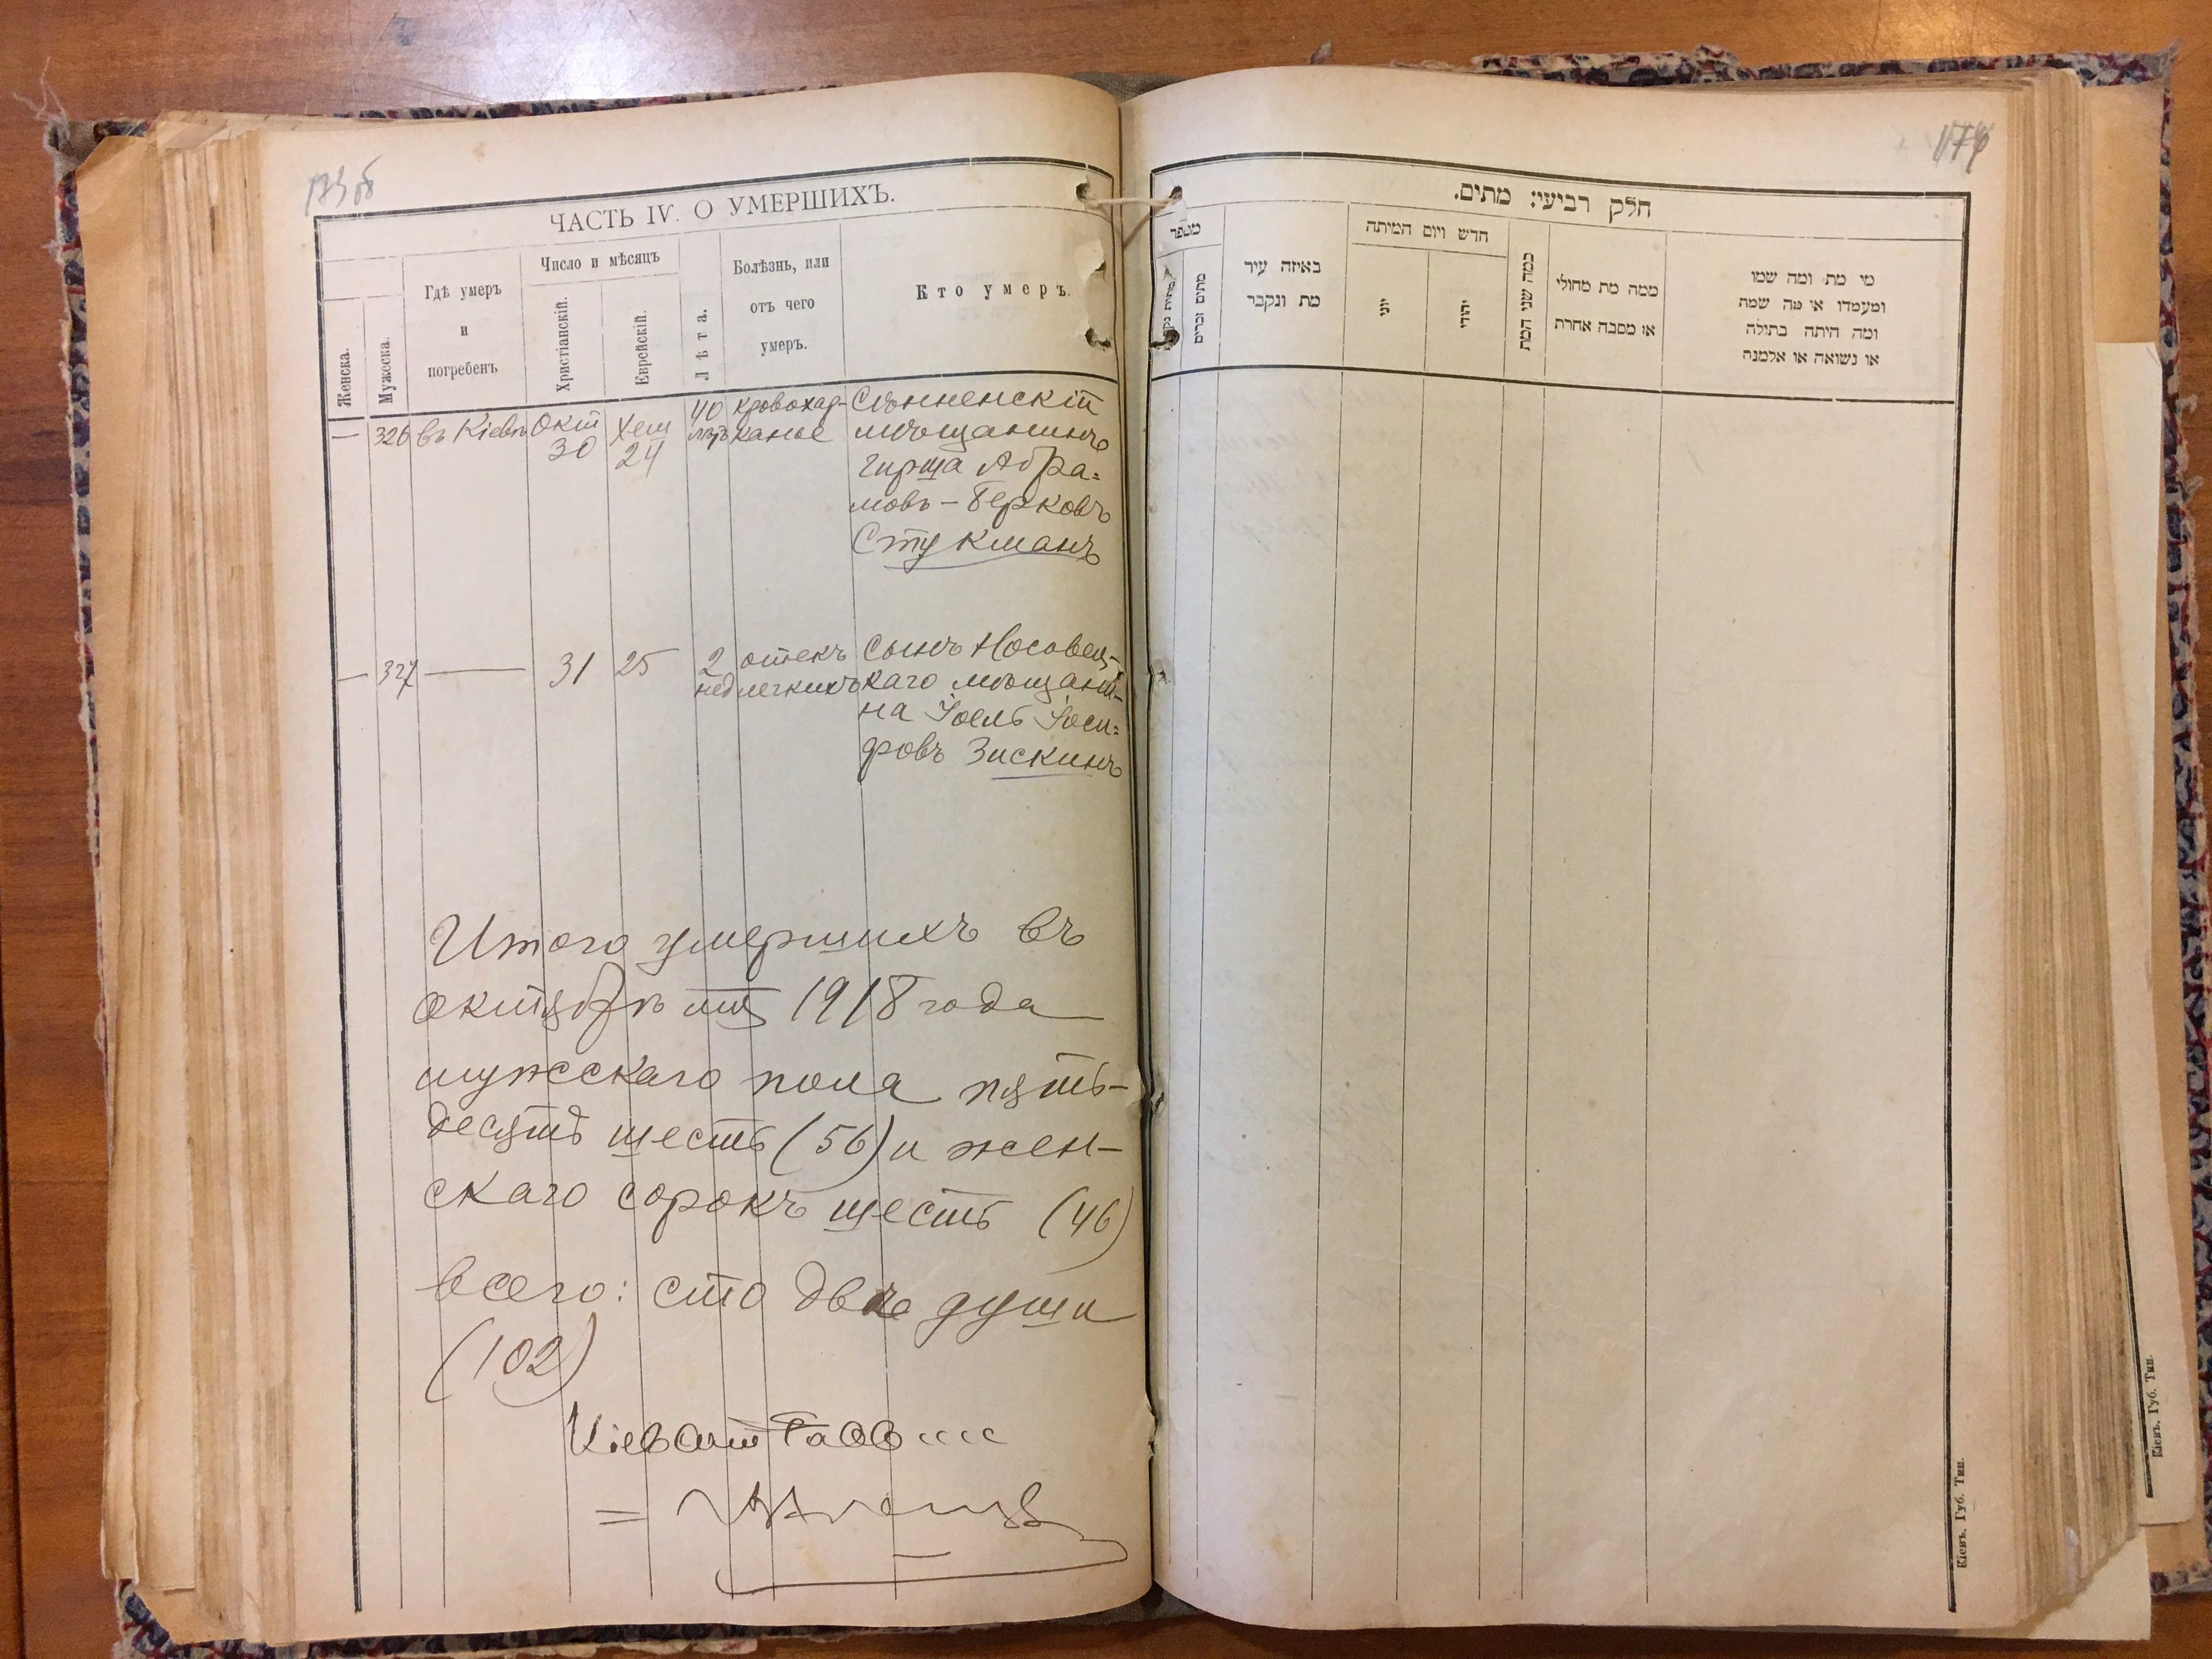 173об
ЧАСТЬ IV. О УМЕРШИХЪ.
Женска.
Мужеска.
Гдѣ умеръ
и
погребенъ
Число и мѣсяцъ
Христіанскій.
Еврейскій.
Лѣта.
Болѣзнь, или
отъ чего
умеръ.
Кто умеръ.
— 326 въ Кіевѣ Окт 30 Хеш 24 40 лѣтъ кровохар-
канье
Сѣнненскій
мѣщанинъ
Гирша Абра=
мовъ-Берковъ
Стукманъ
— 327 — 31 25 2 нед отекъ
легкихъ
Сынъ Носовец-
каго мѣщани-
на Іоель Іоси=
фовъ Зискинъ
Итого умершихъ въ
октябрѣ мц 1918 года
мужескаго пола пять-
десятъ шесть (56) и жен-
скаго сорокъ шесть (46)
всего: сто двѣ души
(102)
חלק רביעי: מתים.
מספר
מתים זכרים
באיזה עיר
מת ונקבר
חדש ויום המיתה
יוני
יהודי
כמה שני המת
ממה מת מחולי
או מסבה אחרת
מי מת ומה שמו
ומעמדו או מה שמה
ומה היתה בתולה
או נשואה או אלמנה
Кіевъ, Губ. Тип.
Кіевъ, Губ. Тип.